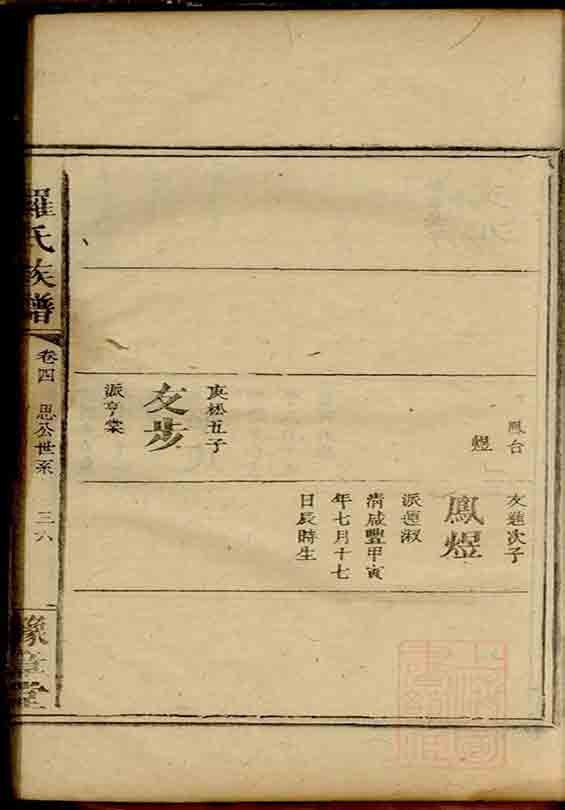 鳳台
煜
庚松五子
友步
派亨棠
友蓮次子
鳳煜
派運淑
清咸豐甲寅
年七月十七
日辰時生
羅氏族譜
卷四
思公世系
三六
豫章堂